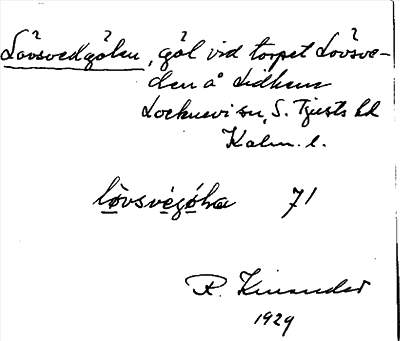 Lövsvedgölen, göl vid torpet Lövsve-
den å Lidhem
Locknevi sn, S. Tjusts hd
Kalm. l.
71
R. Kinander
1929